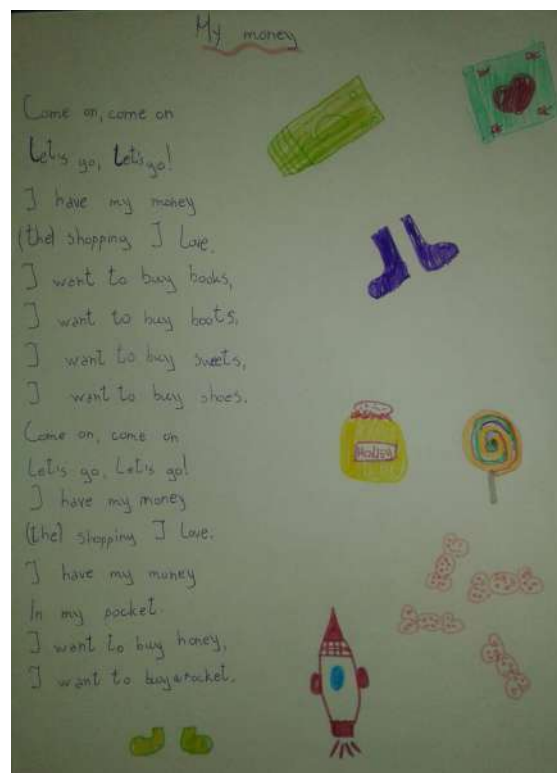 My money
Come on, come on
Let's go, Let's go!
I have my money
(the) shopping I Love.
I want to buy books,
I want to buy boots,
I want to buy sweets,
I want to buy shoes.
Come on, come on
Let's go, Let's go!
I have my money
(the) shopping I Love.
I have my money
In my pocket.
I want to buy honey,
I want to buy a rocket.
Honey